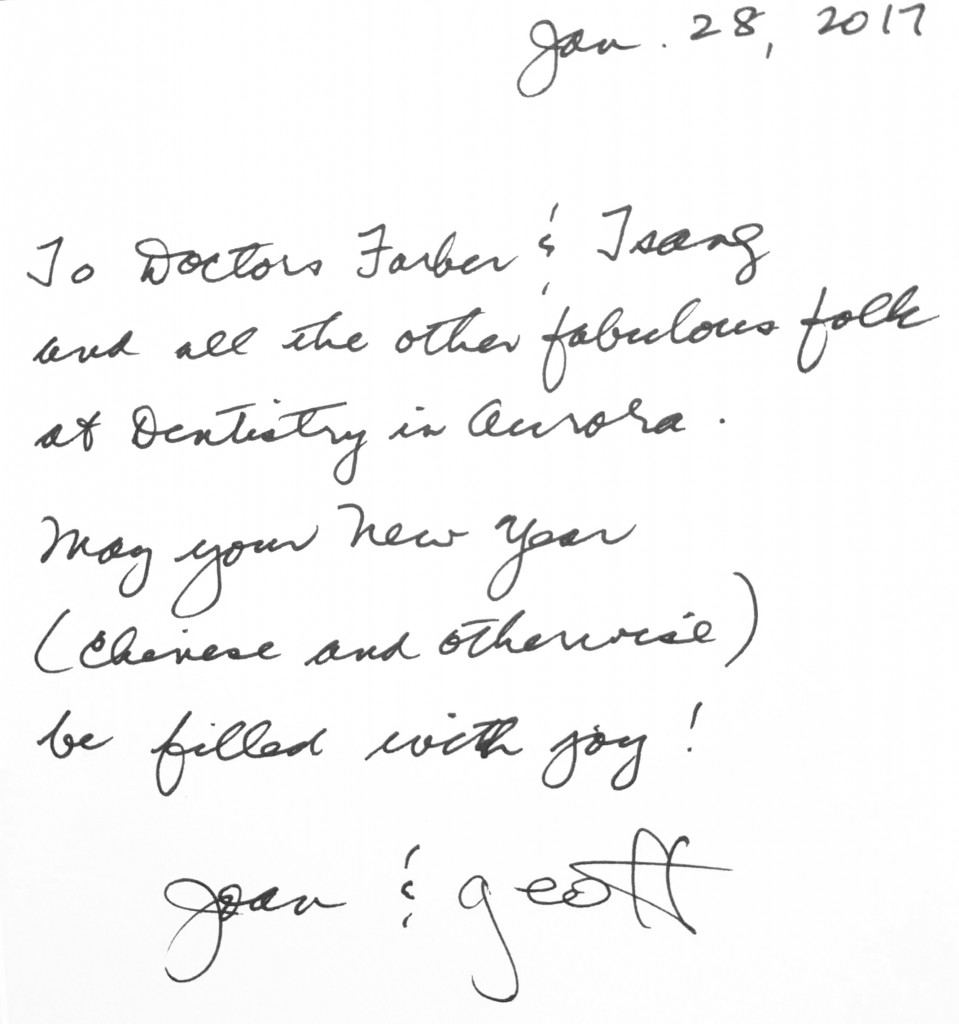 Jan. 28, 2017
To Doctors Farber & Tsang
and all the other fabulous folk
at Dentistry in Aurora.
May your New Year
(Chinese and otherwise)
be filled with joy!
Joan & Geoff